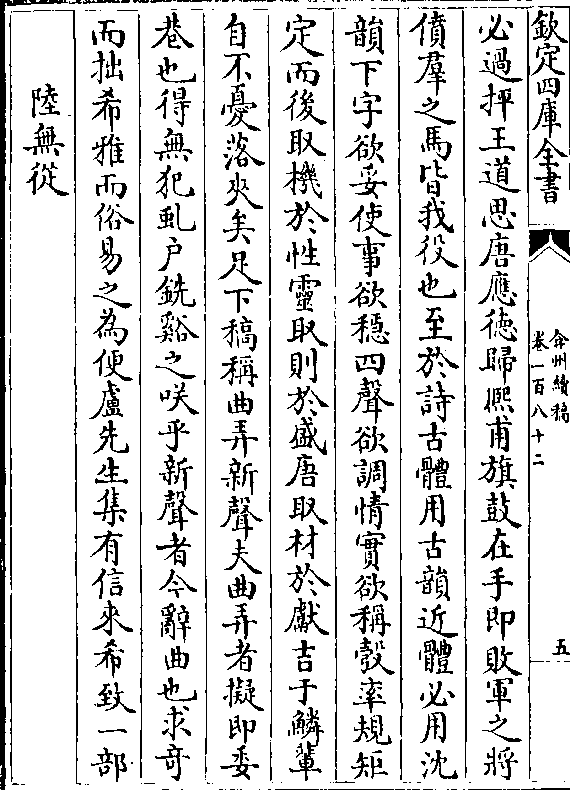 欽定四庫全書
弇州續稿
卷一百八十二
五
必過抨王道思唐應徳歸熈甫旗鼓在手即敗軍之將
僨羣之馬皆我役也至於詩古體用古韻近體必用沈
韻下字欲妥使事欲穩四聲欲調情實欲稱彀率規矩
定而後取機於性靈取則於盛唐取材於獻吉于鱗輩
自不憂落夾矣足下稿稱曲弄新聲夫曲弄者擬即委
巷也得無犯虬户銑谿之咲乎新聲者今辭曲也求竒
而拙希雅而俗易之為便盧先生集有信來希致一部
陸無從